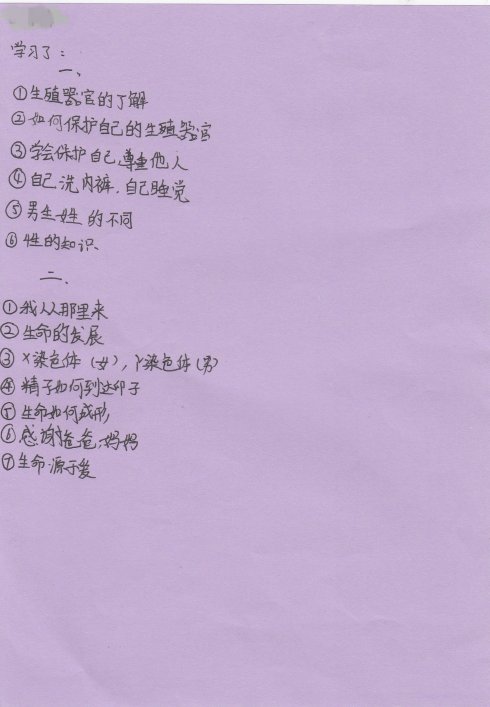 学习了：
一、
①生殖器官的了解
②如何保护自己的生殖器官
③学会保护自己尊重他人
④自己洗内裤，自己睡觉
⑤男生女生的不同
⑥性的知识、
二、
①我从那里来
②生命的发展
③X染色体（女），Y染色体（男）
④精子如何到达卵子
⑤生命如何成形
⑥感谢爸爸、妈妈
⑦生命源于爱